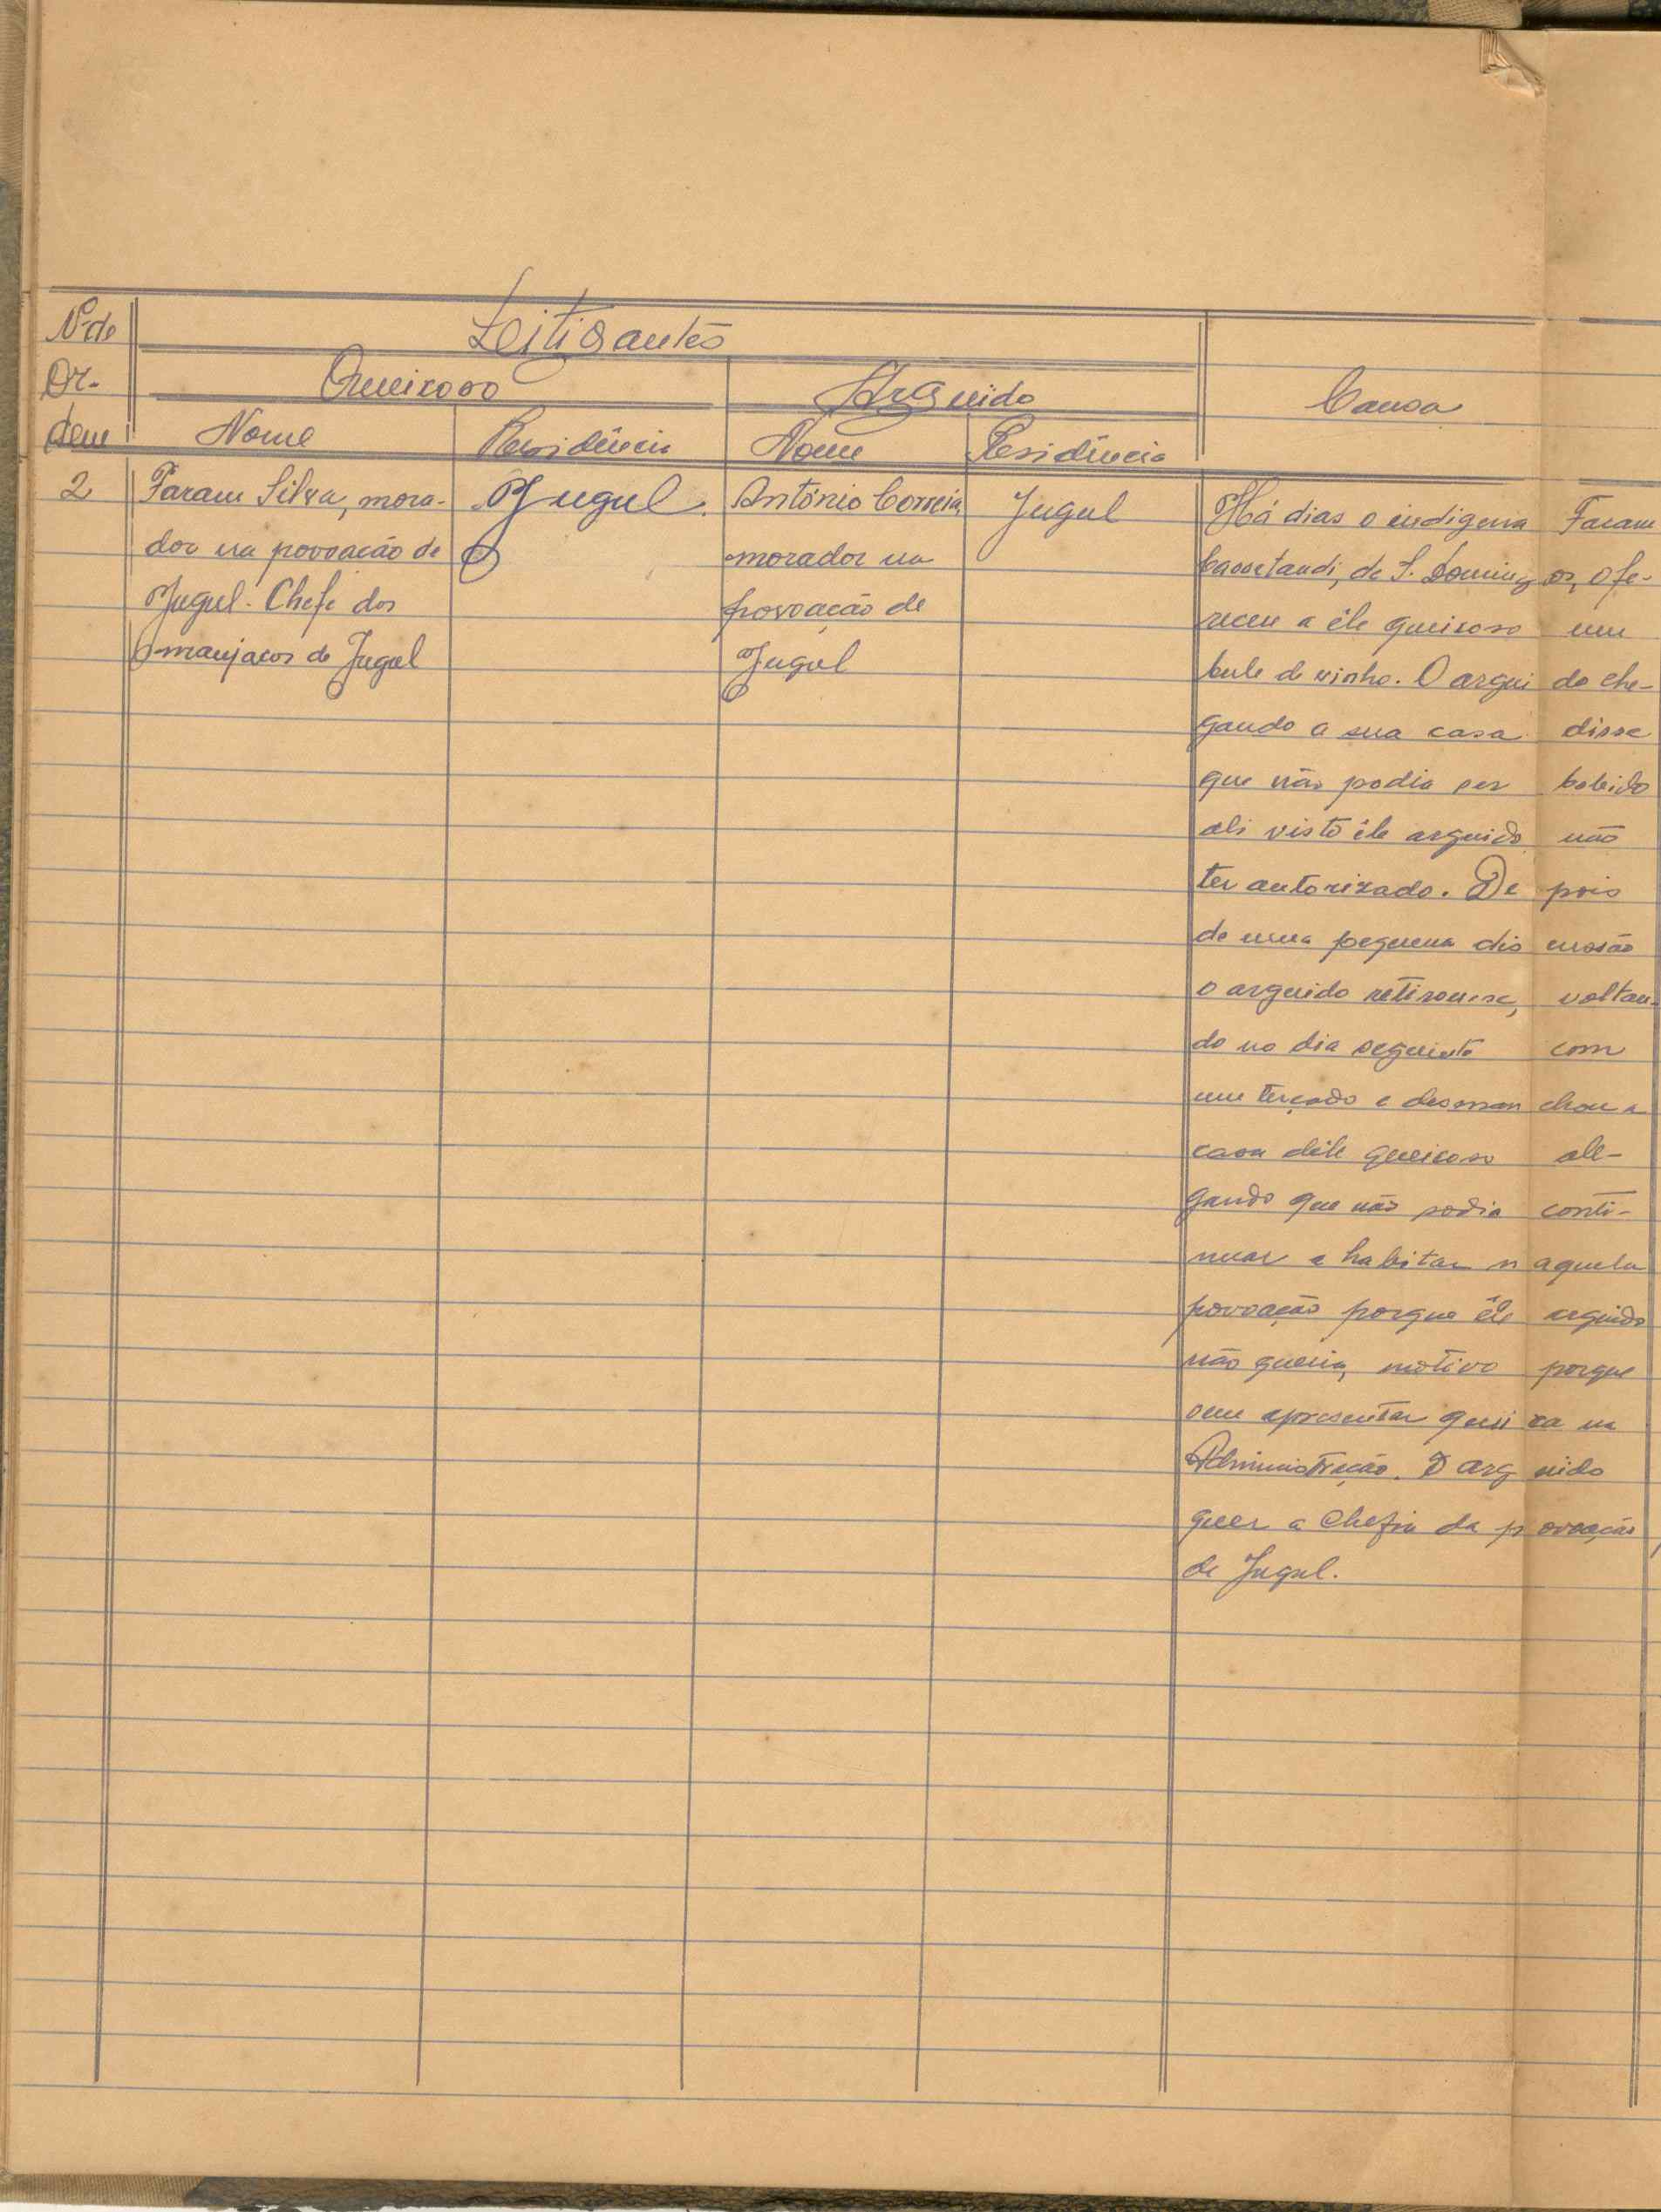 Nº de
Leitigantes
Or-
Queixoso
Arguido
Causa
dem
Nome
Residência
Nome
Residência
2
Faram Silva, mora-
dor na povoacão de
Jugul. Chefe dos
manjacos de Jugul
Jugul.
António Correia,
morador na
povoação de
Jugul
Jugul
Há dias o indigena Faram
Cassetandi, de S. Domingos, ofe-
receu a êle queixoso um
bule de vinho. O arguido che-
gando a sua casa disse
que não podia ser bebido
ali visto êle arguido não
ter autorizado. Depois
de uma pequena discussão
o arguido retirou-se, voltan-
do no dia seguinte com
um terçado e desmanchou a
casa dêle queixoso ale-
gando que não podia conti-
nuar a habitar naquela
povoação porque êle arguido
não queria, motivo porque
vem apresentar queixa na
Administração. O arguido
quer a chefia da povoação
de Jugul.